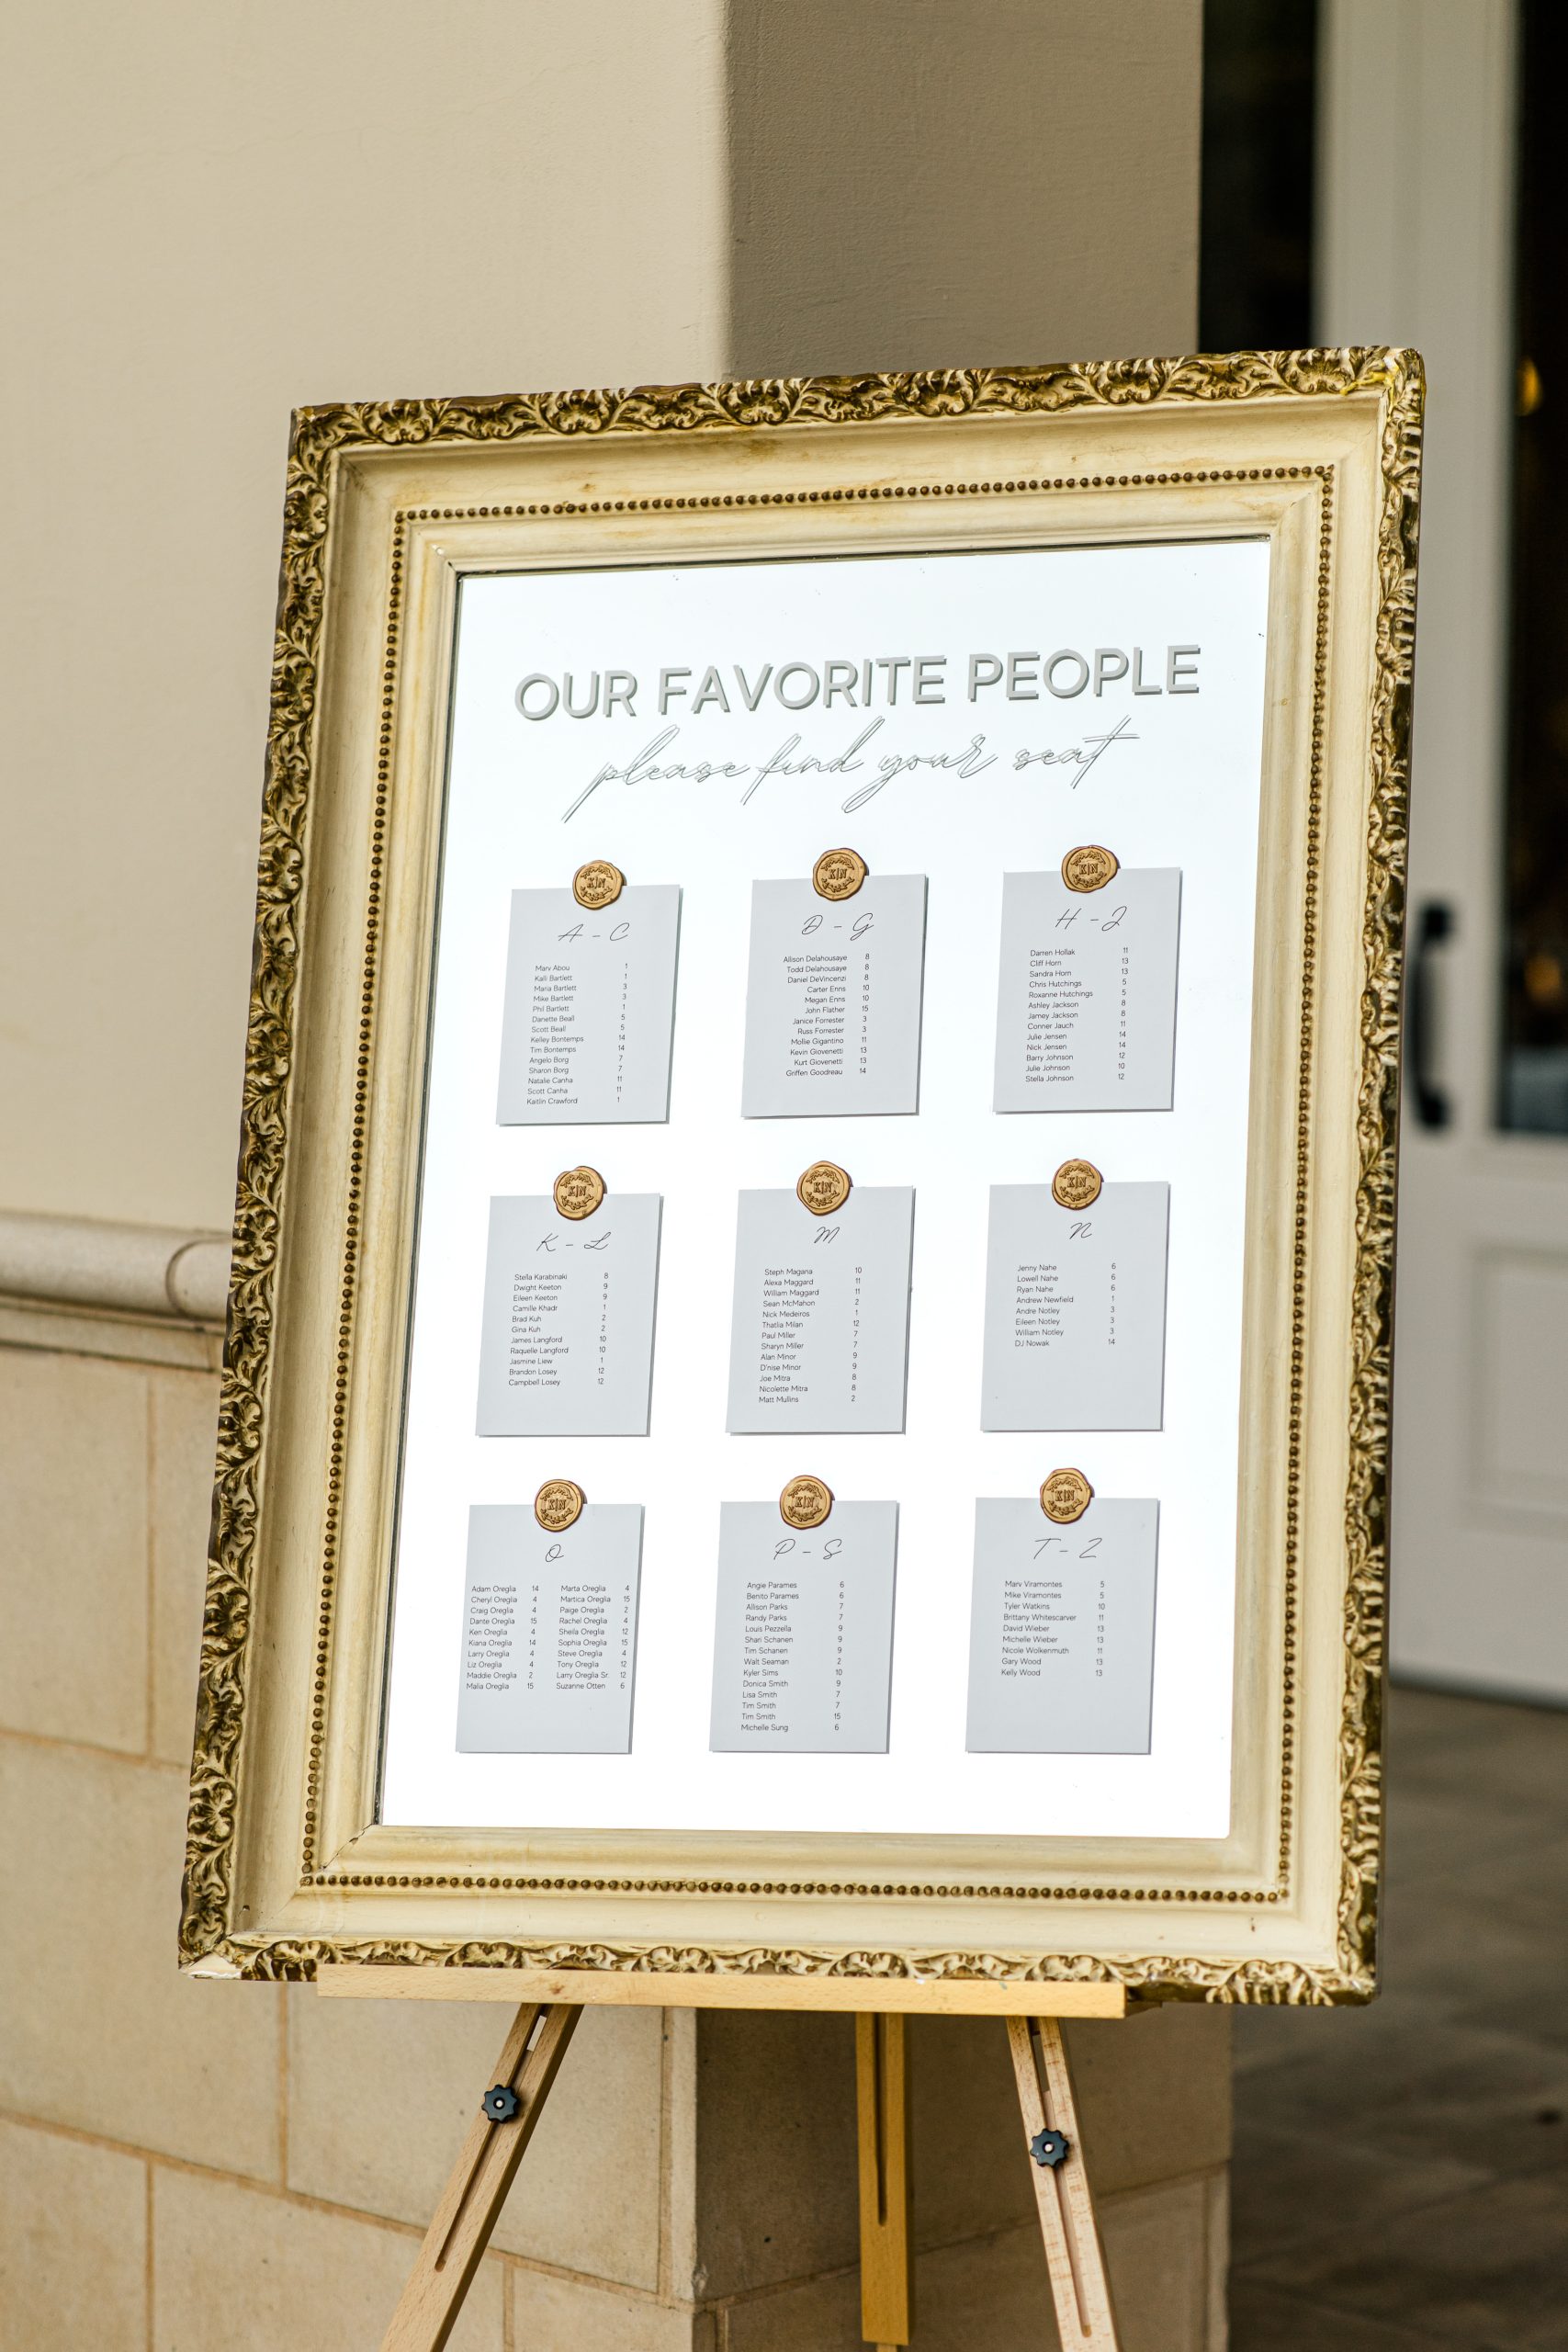 OUR FAVORITE PEOPLE
please find your seat
K|N
A - C
Marv Abou 1
Kalli Bartlett 1
Maria Bartlett 3
Mike Bartlett 3
Phil Bartlett 1
Danette Beall 5
Scott Beall 5
Kelley Bontemps 14
Tim Bontemps 14
Angelo Borg 7
Sharon Borg 7
Natalie Canha 11
Scott Canha 11
Kaitlin Crawford 1
K|N
D - G
Allison Delahousaye 8
Todd Delahousaye 8
Daniel DeVincenzi 8
Carter Enns 10
Megan Enns 10
John Flather 15
Janice Forrester 3
Russ Forrester 3
Mollie Gigantino 11
Kevin Giovenetti 13
Kurt Giovenetti 13
Griffen Goodreau 14
K|N
H - J
Darren Hollak 11
Cliff Horn 13
Sandra Horn 13
Chris Hutchings 5
Roxanne Hutchings 5
Ashley Jackson 8
Jamey Jackson 8
Conner Jauch 11
Julie Jensen 14
Nick Jensen 14
Barry Johnson 12
Julie Johnson 10
Stella Johnson 12
K|N
K - L
Stella Karabinaki 8
Dwight Keeton 9
Eileen Keeton 9
Camille Khadr 1
Brad Kuh 2
Gina Kuh 2
James Langford 10
Raquelle Langford 10
Jasmine Liew 1
Brandon Losey 12
Campbell Losey 12
K|N
M
Steph Magana 10
Alexa Maggard 11
William Maggard 11
Sean McMahon 2
Nick Medeiros 1
Thatlia Milan 12
Paul Miller 7
Sharyn Miller 7
Alan Minor 9
D'nise Minor 9
Joe Mitra 8
Nicolette Mitra 8
Matt Mullins 2
K|N
N
Jenny Nahe 6
Lowell Nahe 6
Ryan Nahe 6
Andrew Newfield 1
Andre Notley 3
Eileen Notley 3
William Notley 3
DJ Nowak 14
K|N
O
Adam Oreglia 14 Marta Oreglia 4
Cheryl Oreglia 4 Martica Oreglia 15
Craig Oreglia 4 Paige Oreglia 2
Dante Oreglia 15 Rachel Oreglia 4
Ken Oreglia 4 Sheila Oreglia 12
Kiana Oreglia 14 Sophia Oreglia 15
Larry Oreglia 4 Steve Oreglia 4
Liz Oreglia 4 Tony Oreglia 12
Maddie Oreglia 2 Larry Oreglia Sr. 12
Malia Oreglia 15 Suzanne Otten 6
K|N
P - S
Angie Parames 6
Benito Parames 6
Allison Parks 7
Randy Parks 7
Louis Pezzella 9
Shari Schanen 9
Tim Schanen 9
Walt Seaman 2
Kyler Sims 10
Donica Smith 9
Lisa Smith 7
Tim Smith 7
Tim Smith 15
Michelle Sung 6
K|N
T - Z
Marv Viramontes 5
Mike Viramontes 5
Tyler Watkins 10
Brittany Whitescarver 11
David Wieber 13
Michelle Wieber 13
Nicole Wolkenmuth 11
Gary Wood 13
Kelly Wood 13